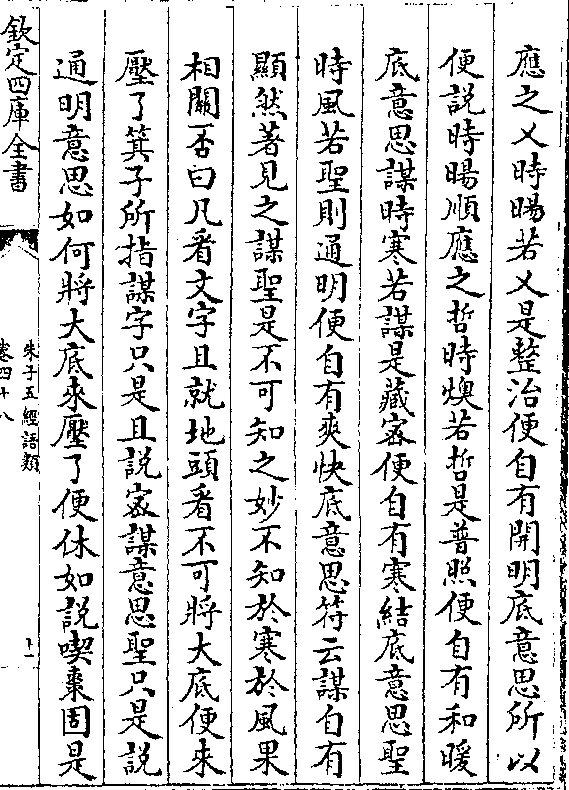 應之乂時暘若乂是整治便自有開明底意思所以
便說時暘順應之哲時燠若哲是普照便自有和暖
底意思謀時寒若謀是藏宻便自有寒結底意思聖
時風若聖則通明便自有爽快底意思符云謀自有
顯然著見之謀聖是不可知之妙不知於寒於風果
相關否曰凡看文字且就地頭看不可將大底便來
壓了箕子所指謀字只是且說宻謀意思聖只是說
通明意思如何將大底來壓了便休如說喫棗固是
欽定四庫全書
朱子五經語類
卷四十八
十一